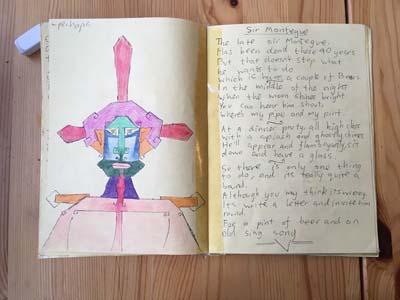 perhaps
Sir Montegue
The late Sir Montegue
Has been dead these 90 years
But that doesn't stop what
he wants to do
Which is have a couple of Beers
In the middle of the night
when the moon shines bright
You can hear him shout
Where's my pipe and my pint.
At a dinner party, all high class
With a splash and ghostly
He'll appear and flamboyantly sit
down and have a glass.
So there is only one thing
to do, and its really quite a
bound.
Although you may think its wrong
Its write a letter and invite him
round.
For a pint of beer and an
old sing song